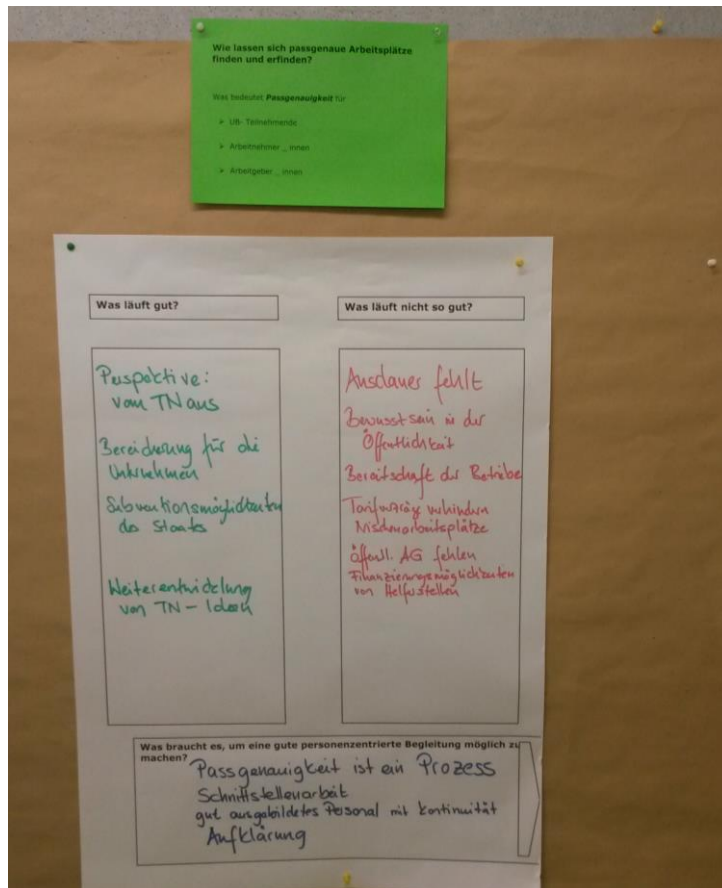 Wie lassen sich passgenaue Arbeitsplätze
finden und erfinden?
Was bedeutet Passgenauigkeit für
➢ UB- Teilnehmende
➢ Arbeitnehmer _ innen
➢ Arbeitgeber _ innen
Was läuft gut?
Perspektive:
vom TN aus
Bereicherung für die
Unternehmen
Subventionsmöglichkeiten
des Staats
Weiterentwicklung
von TN - Ideen
Was läuft nicht so gut?
Ausdauer fehlt
Bewusstsein in der
Öffentlichkeit
Bereitschaft der Betriebe
Tarifverträge verhindern
Nischenarbeitsplätze
öffentl. AG fehlen
Finanzierungsmöglichkeiten
von Helferstellen
Was braucht es, um eine gute personenzentrierte Begleitung möglich zu
machen?
Passgenauigkeit ist ein Prozess
Schnittstellenarbeit
gut ausgebildetes Personal mit Kontinuität
Aufklärung